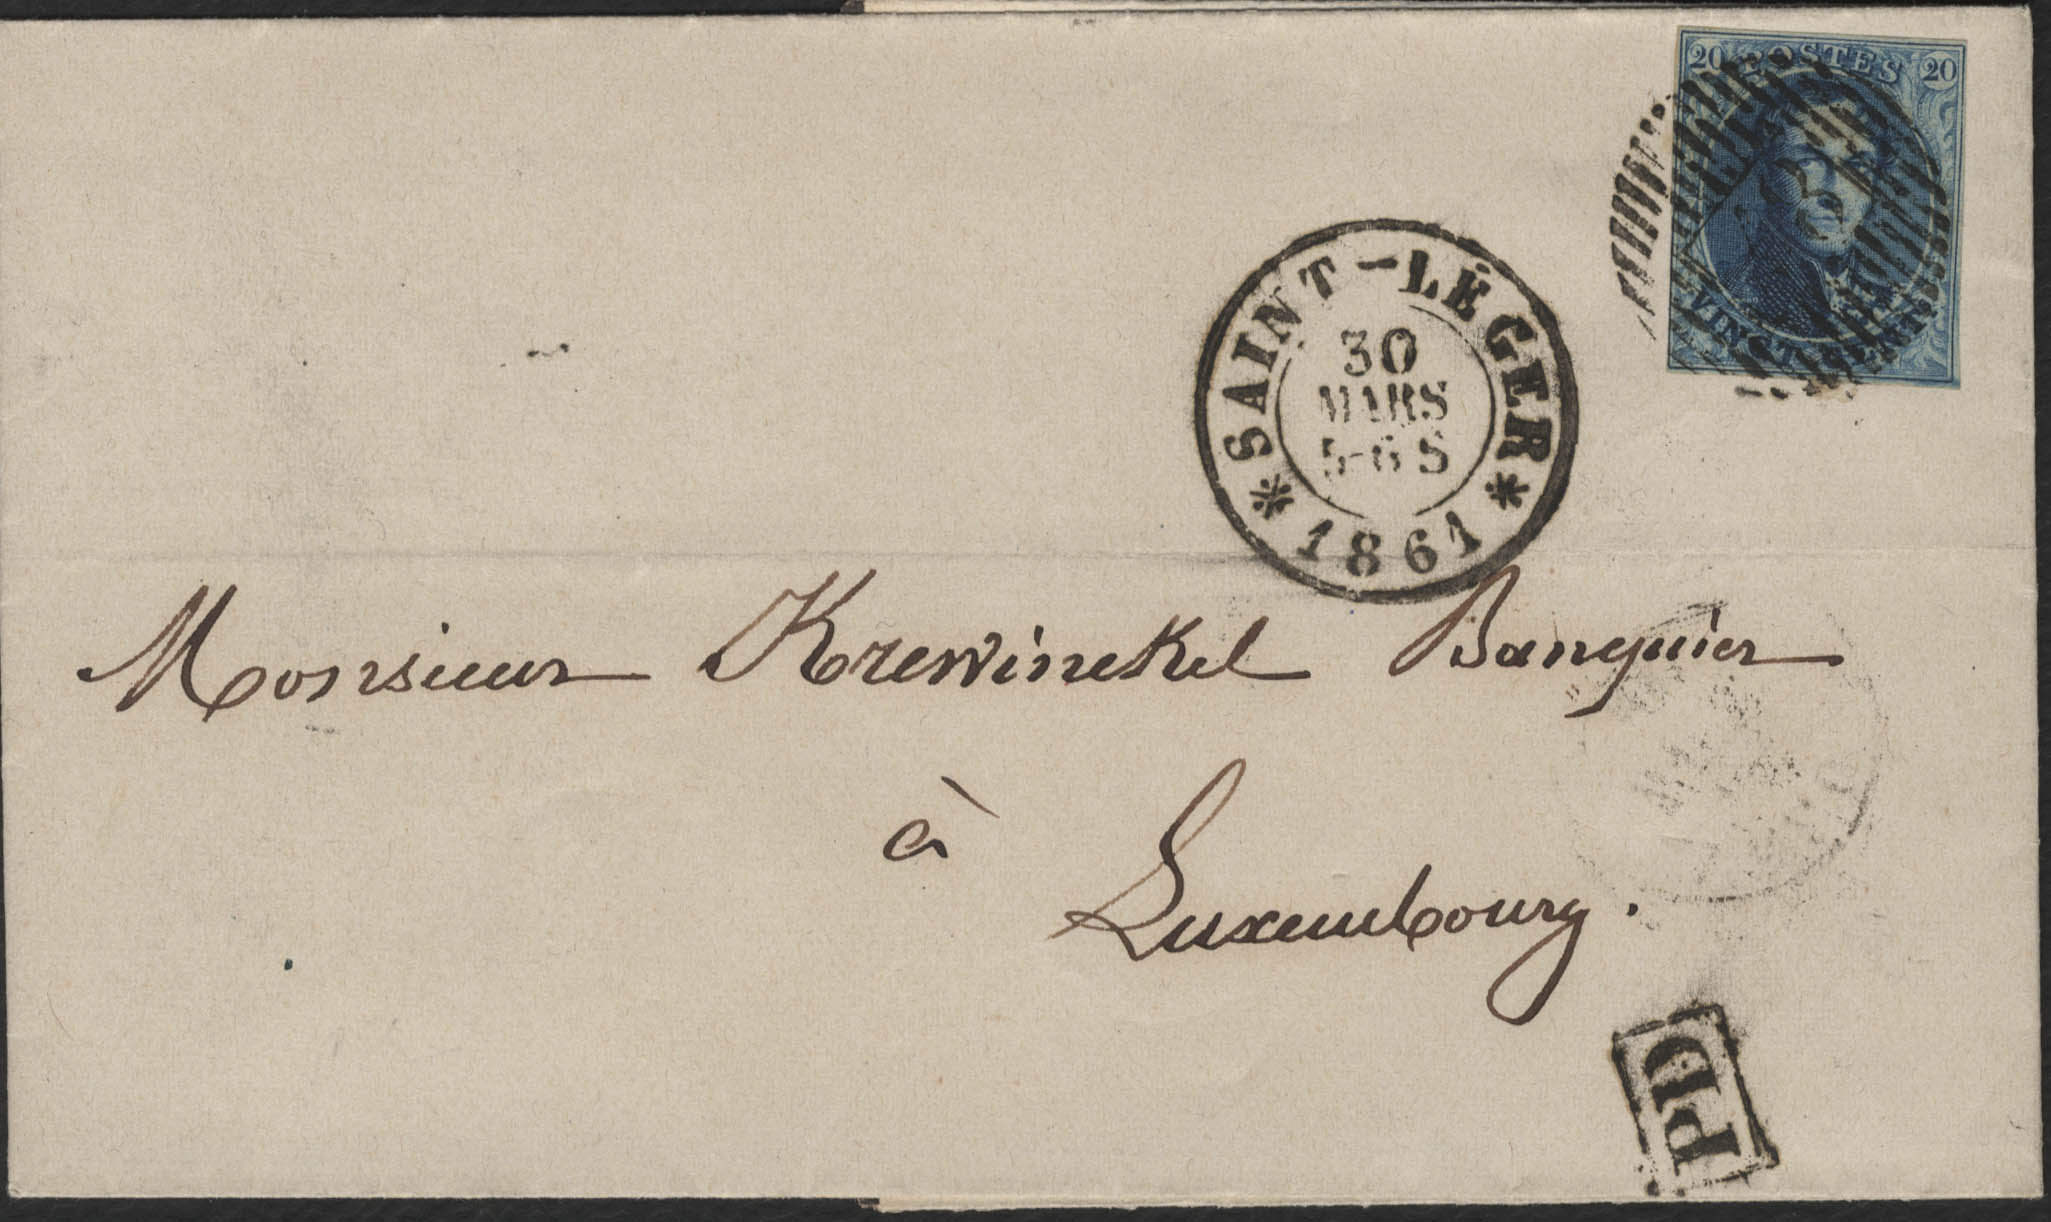 20 POSTES 20
VINGT CENTS
SAINT-LÉGER
30
MARS
5-6 S
* 1861 *
Monsieur Krewinckel Banquier
à
Luxembourg.
PD